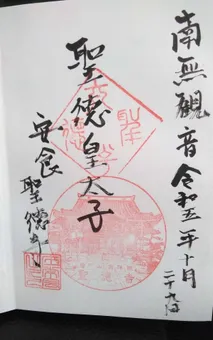 南無観音 令和五年十月二十九日
聖徳皇太子
安食 聖徳寺